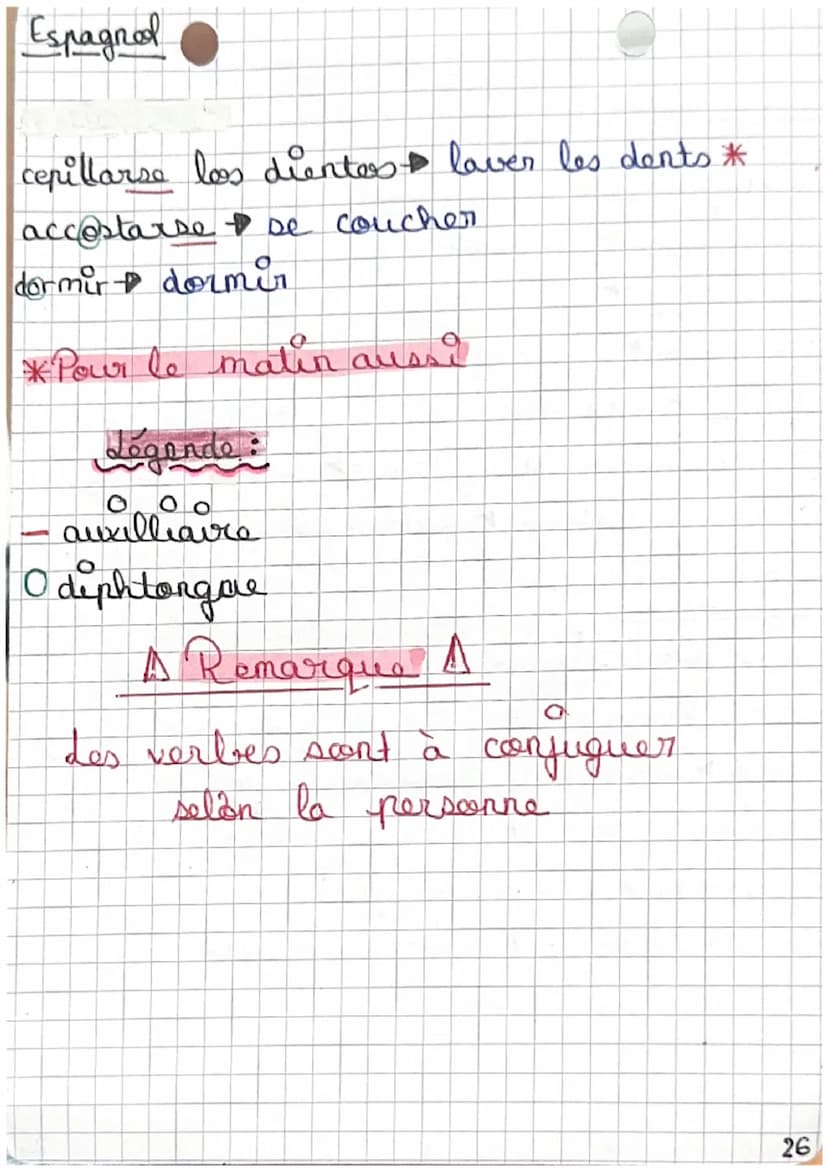 Espagnol
cepillarse los dientes → laver les dents *
accostarse → se coucher
dormir → dormir
* Pour le matin aussi
Légende :
— auxilliaire
O diphtongue
⚠ Remarque ⚠
Les verbes sont à conjuguer
selon la personne
26